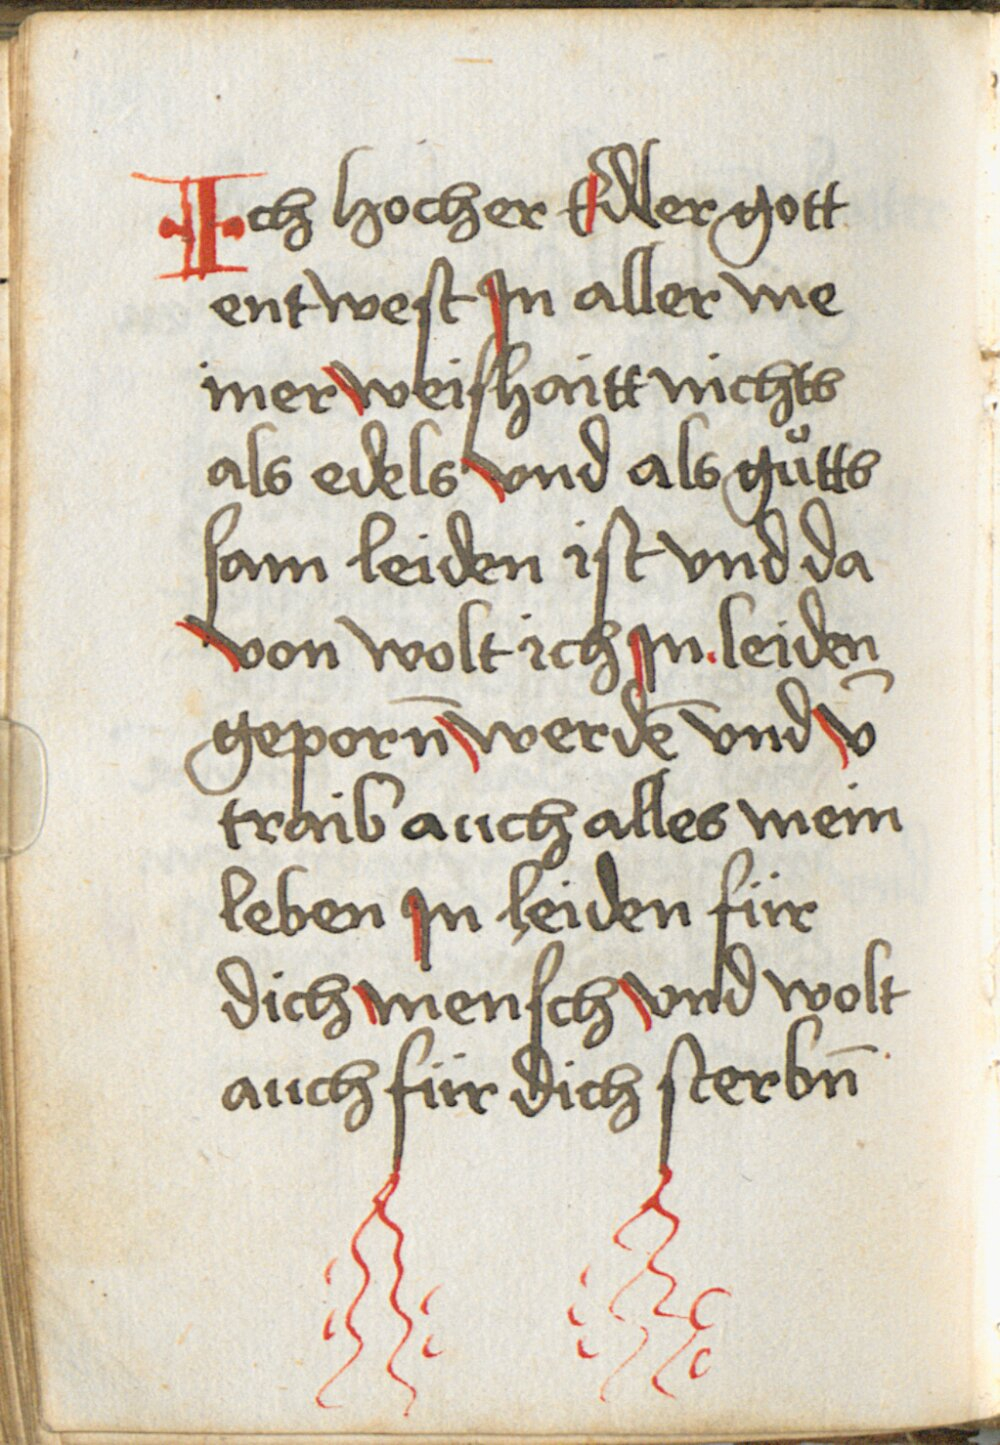 Ich hocher Edler gott
entwest In aller me
iner weishaitt nichts
als edels vnd als gůtts
sam leiden ist vnd da
von wolt ich In. leiden
geporn̄ werdē vnd v̄
traib auch alles mein
leben In leiden für
dich mensch vnd wolt
auch für dich sterbn̄